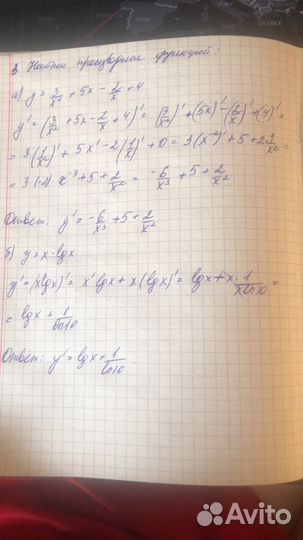 3 Найти производные функций:
а) y = 3/x² + 5x - 2/x + 4
y' = (3/x² + 5x - 2/x + 4)' = (3/x²)' + (5x)' - (2/x)' + (4)' =
= 3(1/x²)' + 5x' - 2(1/x)' + 0 = 3(x⁻²)' + 5 + 2 1/x² =
= 3·(-2)·x⁻³ + 5 + 2/x² = -6/x³ + 5 + 2/x²
Ответ: y' = -6/x³ + 5 + 2/x²
б) y = x·lgx
y' = (xlgx)' = x'lgx + x(lgx)' = lgx + x·1/xln10 =
= lgx + 1/ln10
Ответ: y' = lgx + 1/ln10
Avito